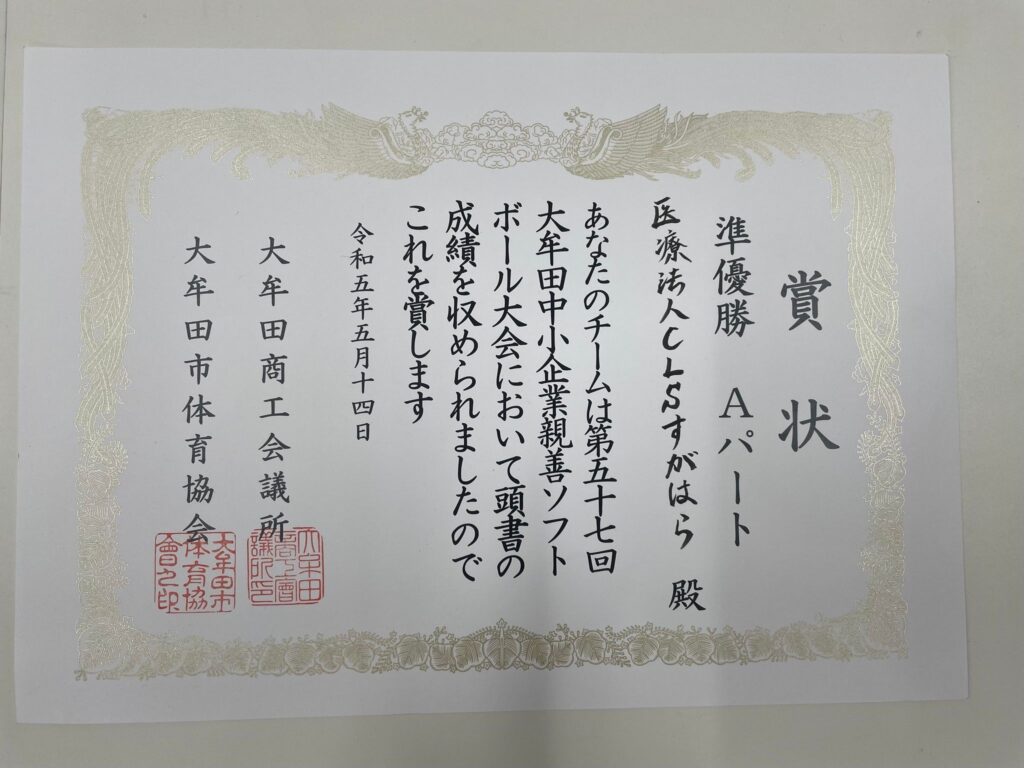 賞状
準優勝 Aパート
医療法人CLSすがはら 殿
あなたのチームは第五十七回
大牟田中小企業親善ソフト
ボール大会において頭書の
成績を収められましたので
これを賞します
令和五年五月十四日
大牟田商工会議所
大牟田市体育協会
大牟田市体育協會之印